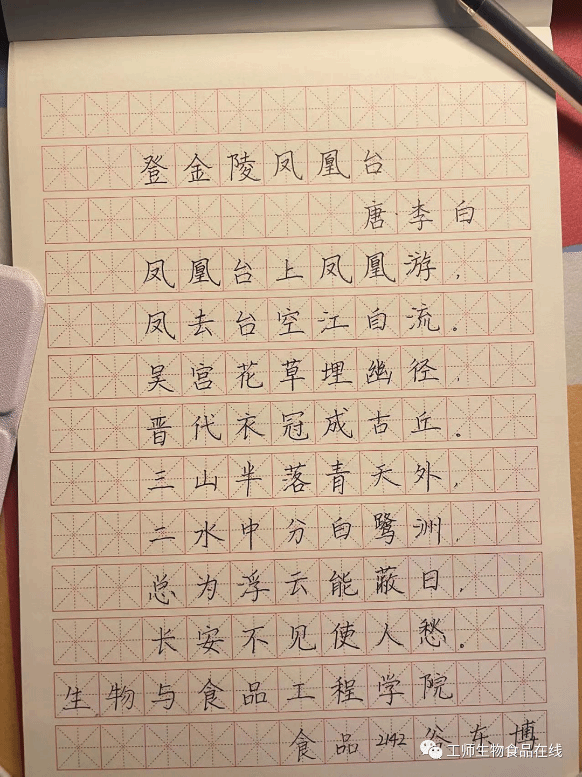 登金陵凤凰台
唐·李白
凤凰台上凤凰游,
凤去台空江自流。
吴宫花草埋幽径,
晋代衣冠成古丘。
三山半落青天外,
二水中分白鹭洲,
总为浮云能蔽日,
长安不见使人愁。
生物与食品工程学院
食品2142 谷东博
工师生物食品在线